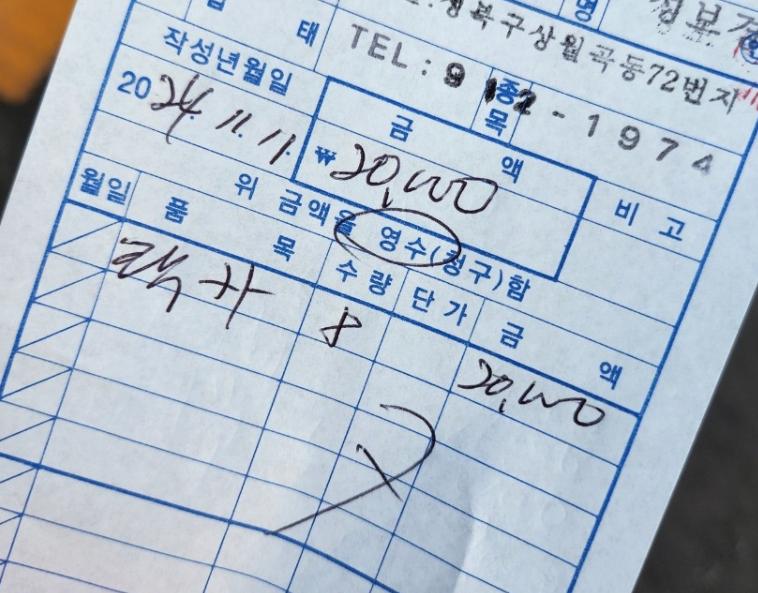 성북구상월곡동72번지
태
TEL : 9 2 - 1 9 7 4
종목
작성년월일
금 액
비 고
20 24. 11. 11.
₩ 20,000
위 금액을 영수(청구)함
월일 품 목 수 량 단 가 금 액
8 20,000